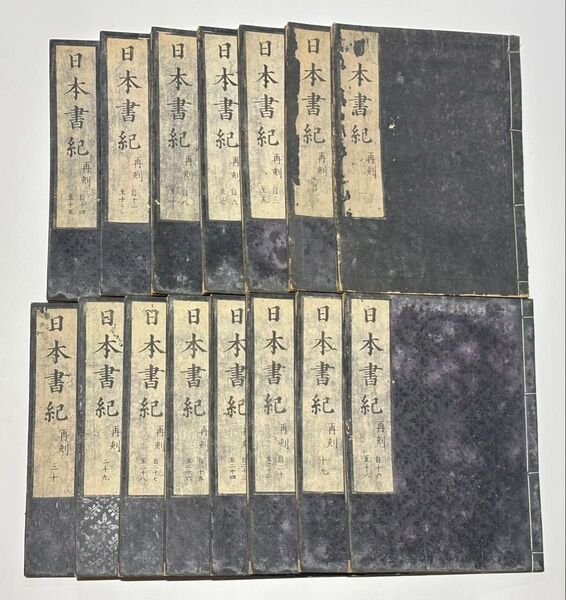 本書紀
再刻
日本書紀
再刻
日本書紀
再刻
自三
至五
日本書紀
再刻
自六
至七
日本書紀
再刻
自八
至十
日本書紀
再刻
自十一
至十三
日本書紀
再刻
自十四
至十五
日本書紀
再刻
自十六
至十八
日本書紀
再刻
十九
日本書紀
再刻
自二十
至二十二
日本書紀
再刻
自二十三
至二十四
日本書紀
再刻
自二十五
至二十六
日本書紀
再刻
自二十七
至二十八
日本書紀
再刻
二十九
日本書紀
再刻
三十